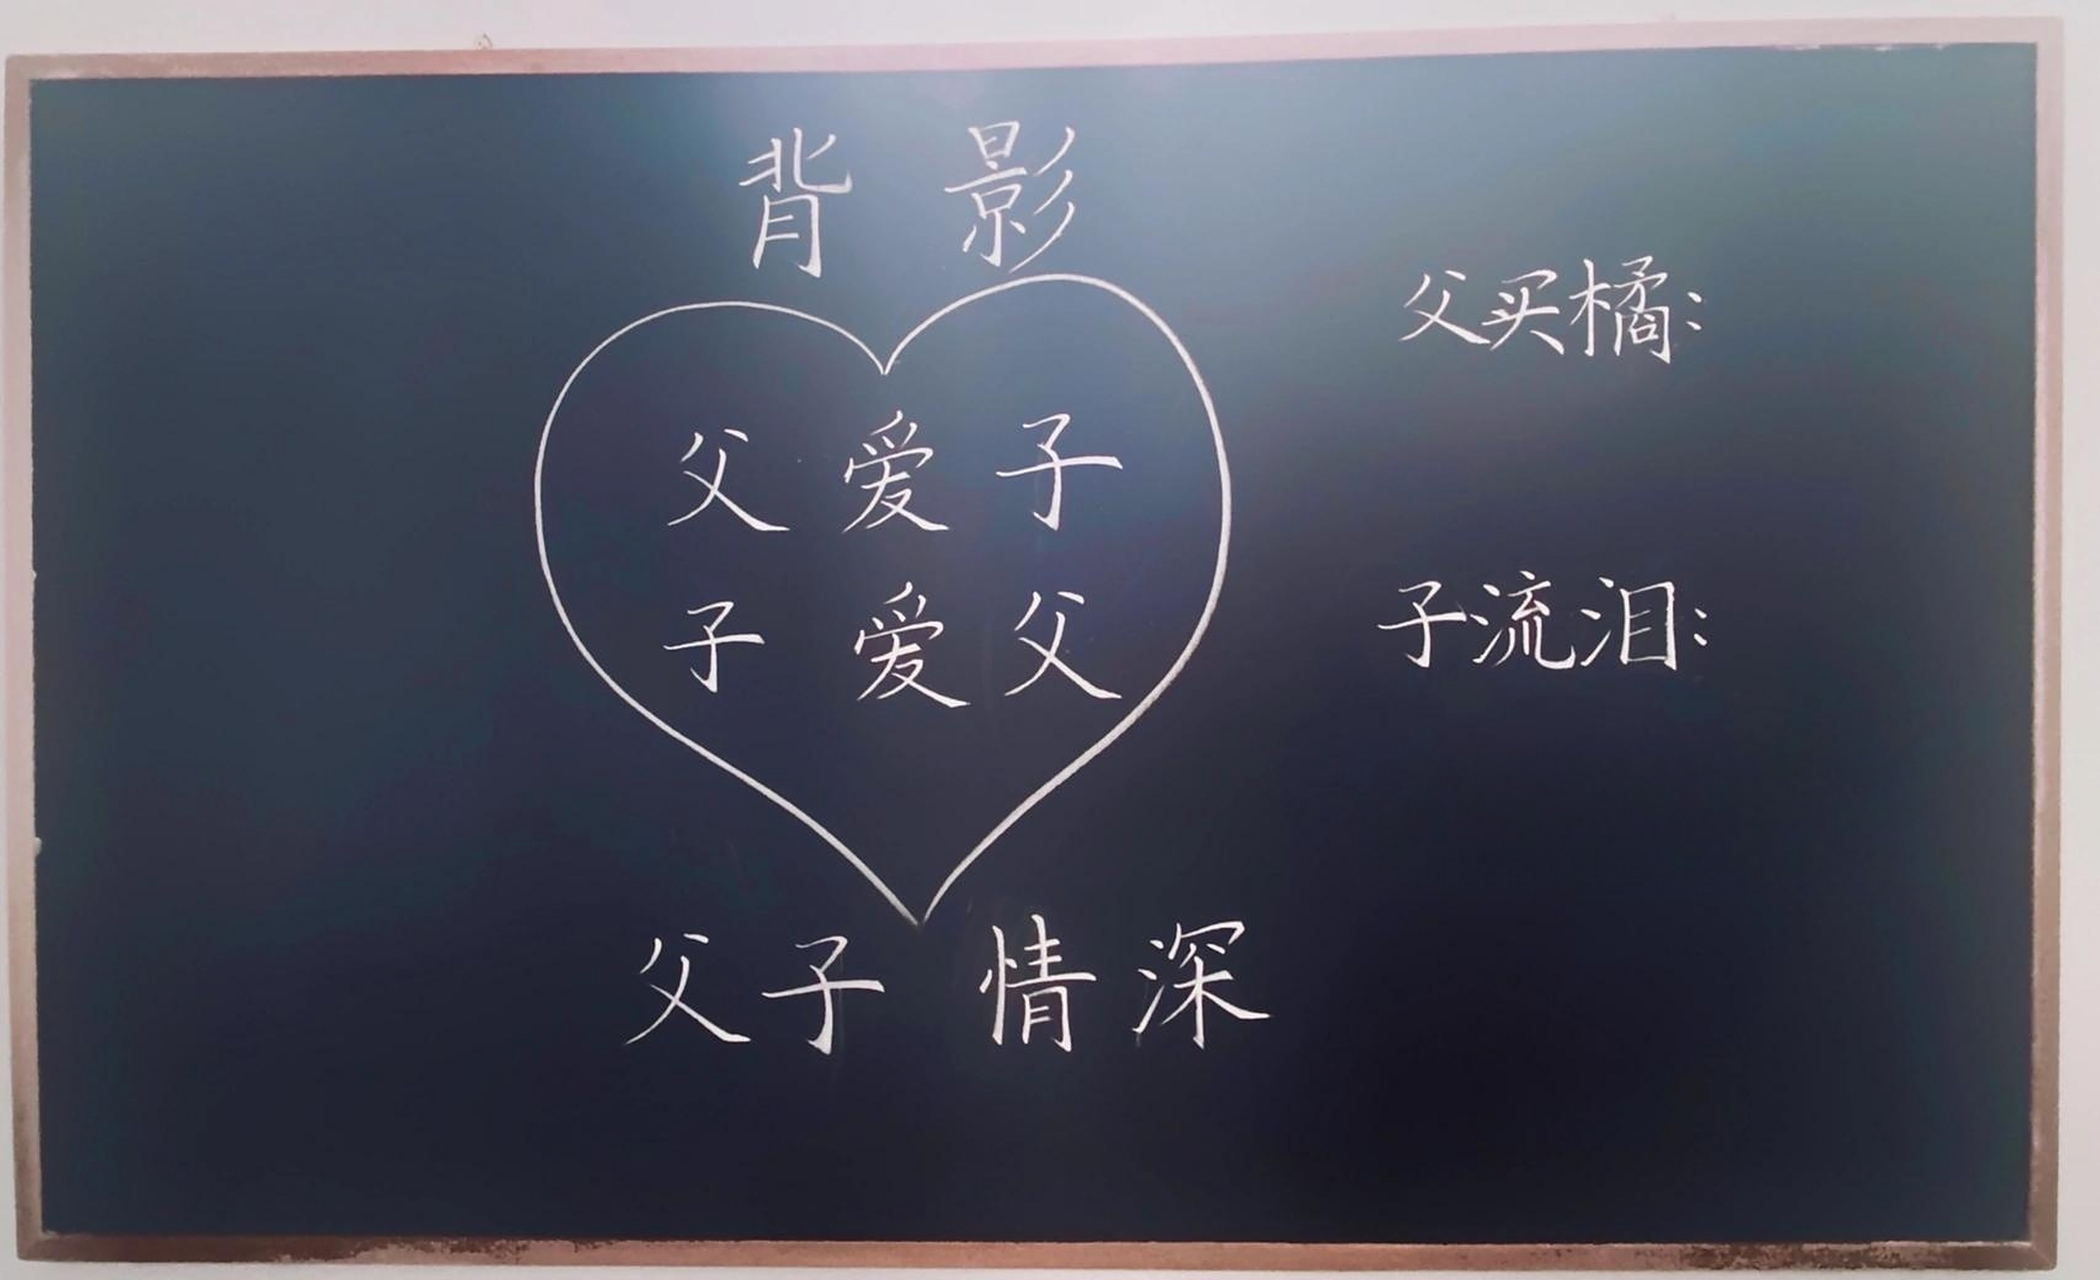 背影
父爱子
子爱父
父子情深
父买橘:
子流泪: